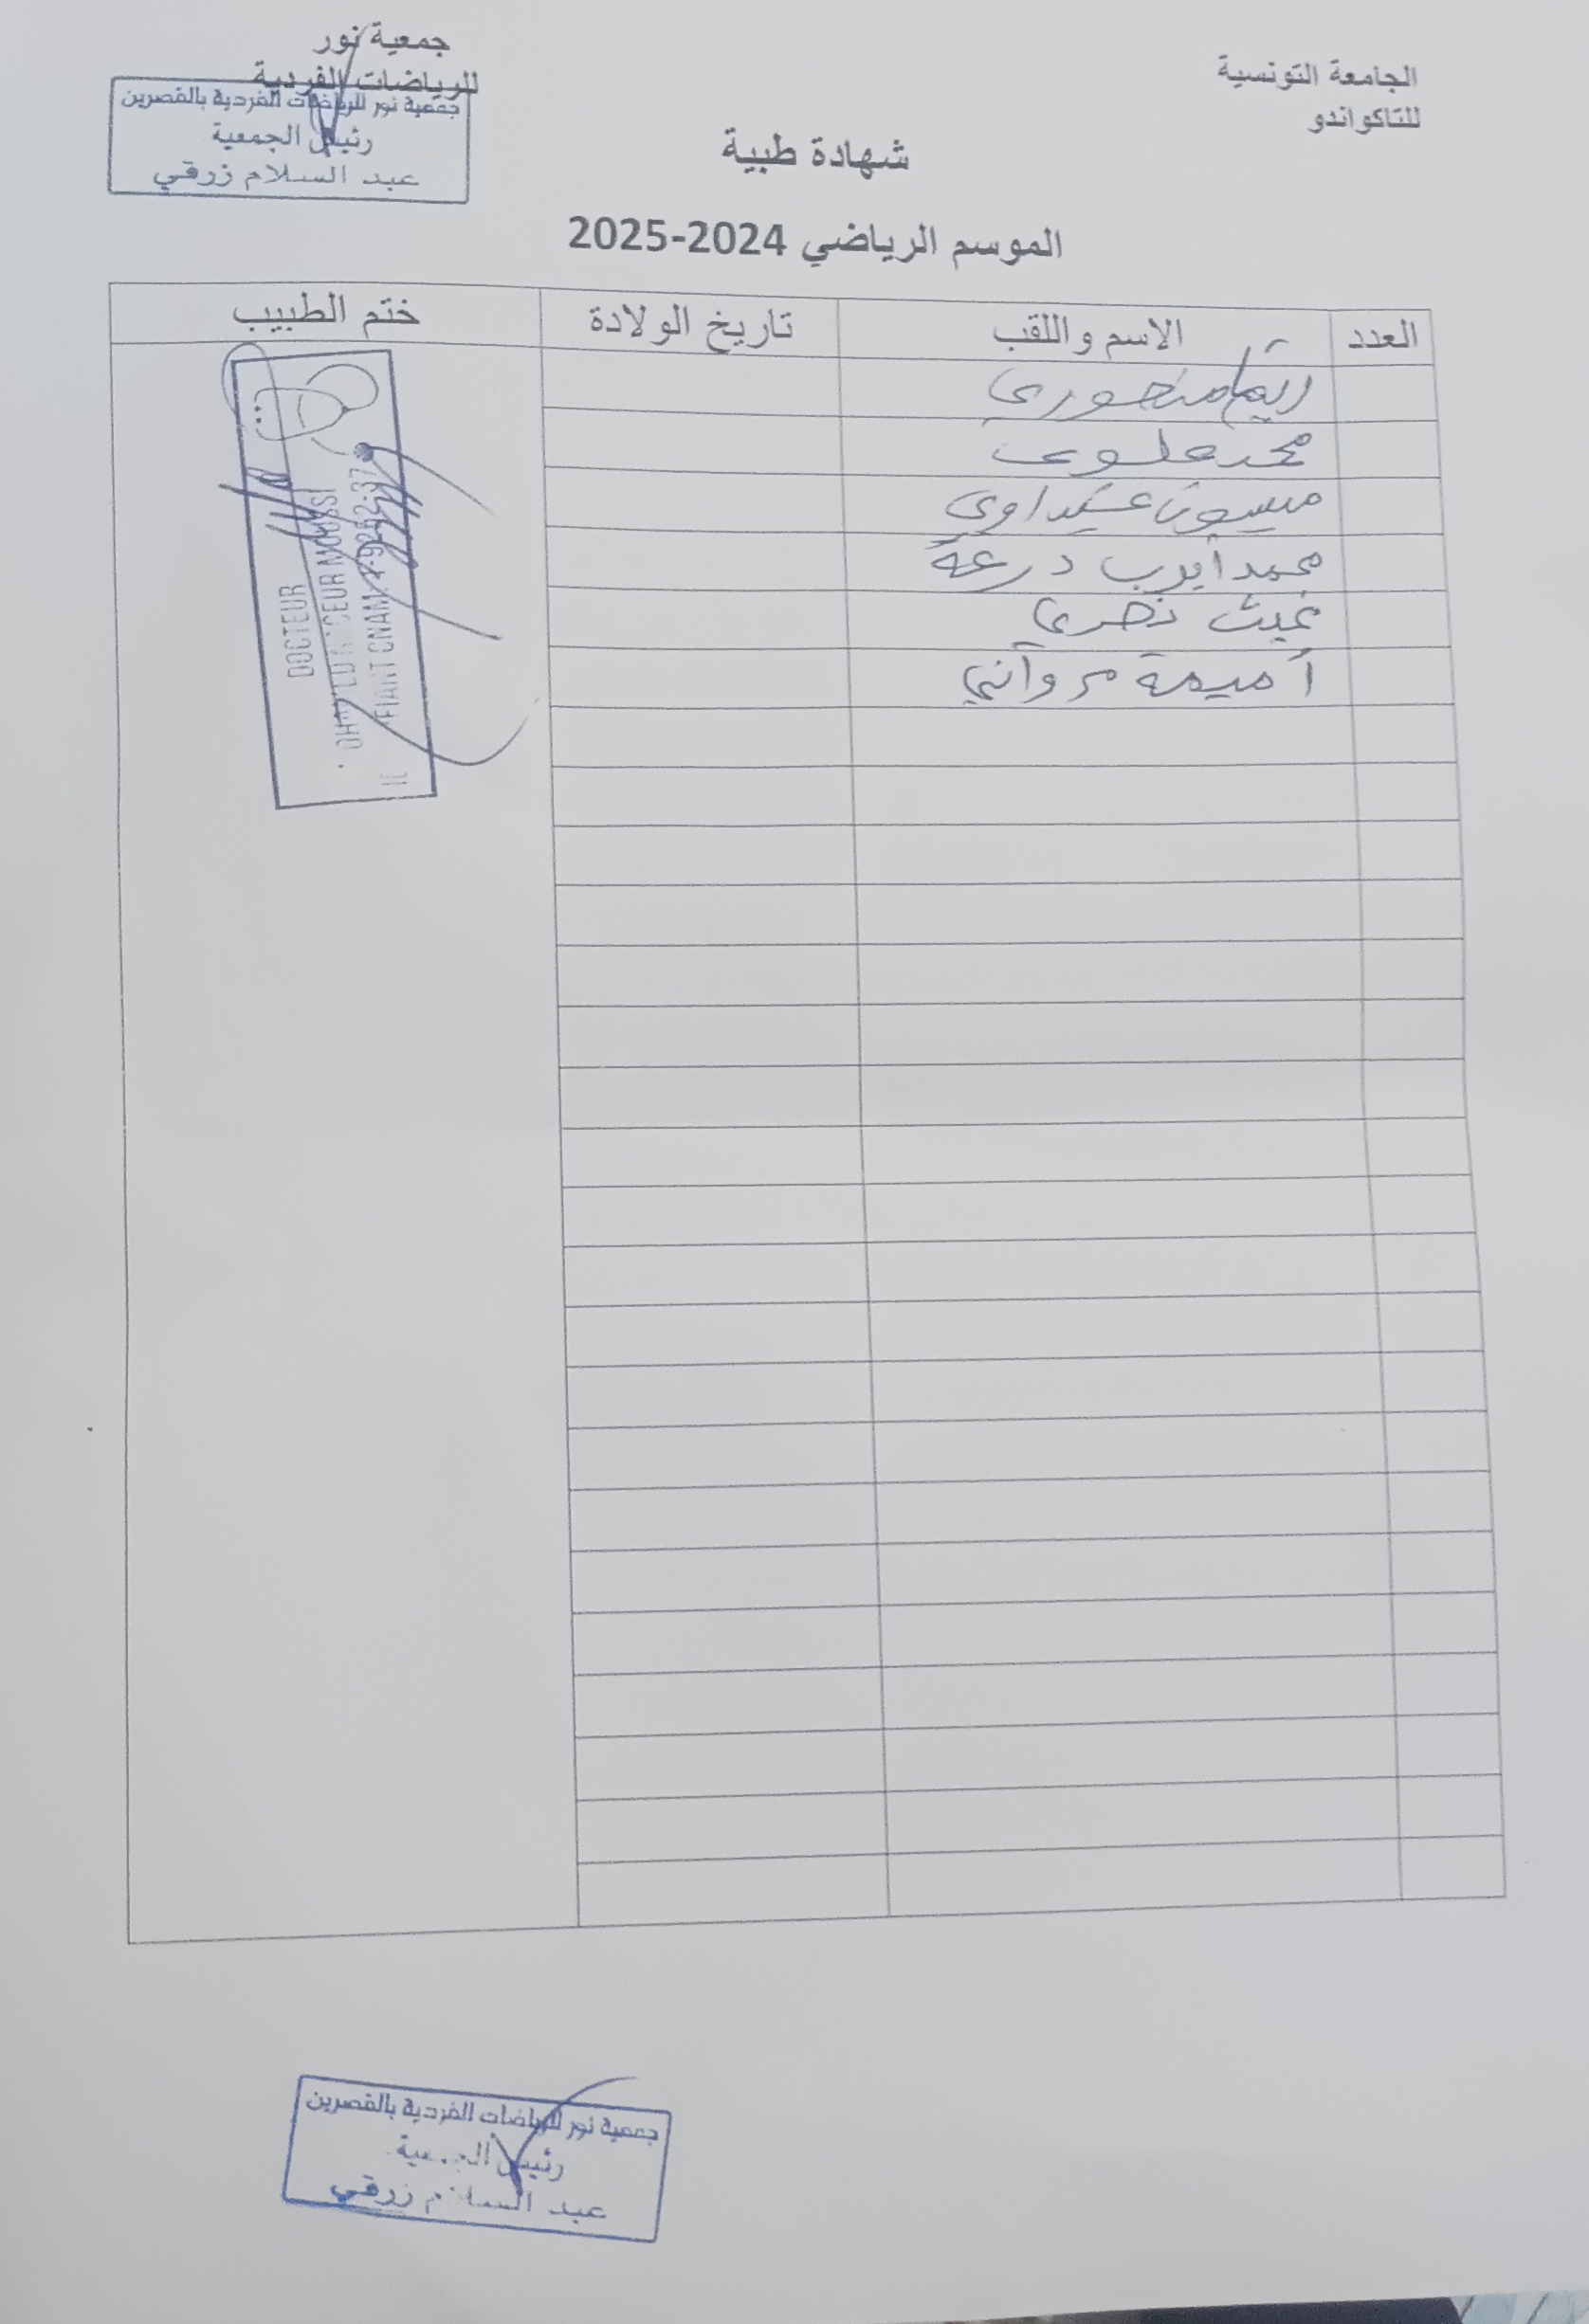 الجامعة التونسية
للتاكواندو
جمعية نور
للرياضات الفردية
جمعية نور للرياضات الفردية بالقصرين
رئيس الجمعية
عبد السلام زرقي
شهادة طبية
الموسم الرياضي 2024-2025
العدد الاسم واللقب تاريخ الولادة ختم الطبيب
منصوري
محمد علوي
ميسون عيداوي
محمد أيوب درعة
غيث نصري
أميمة مرواني
DOCTEUR
CEUR MOUSSI
CNAM
جمعية نور للرياضات الفردية بالقصرين
رئيس الجمعية
عبد السلام زرقي